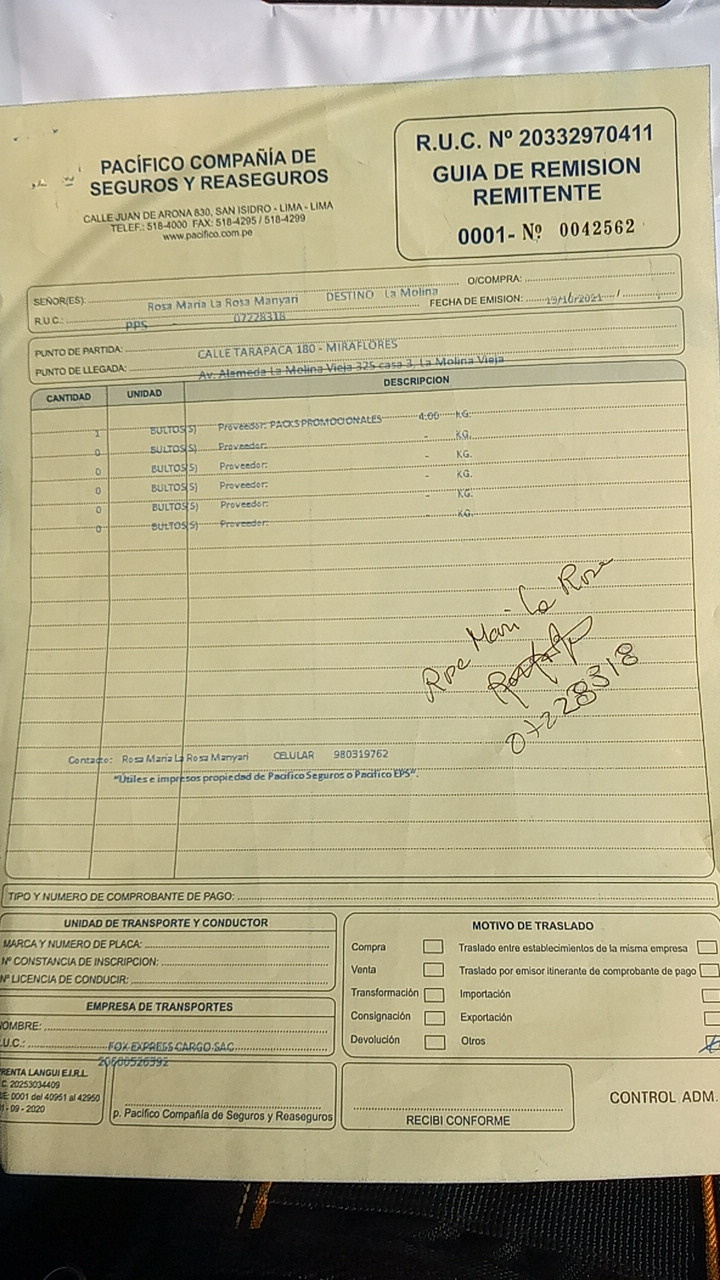 PACÍFICO COMPAÑÍA DE
SEGUROS Y REASEGUROS
CALLE JUAN DE ARONA 830, SAN ISIDRO - LIMA - LIMA
TELEF.: 518-4000 FAX: 518-4295 / 518-4299
www.pacifico.com.pe
R.U.C. Nº 20332970411
GUIA DE REMISION
REMITENTE
0001- Nº 0042562
SEÑOR(ES): Rosa Maria La Rosa Manyari DESTINO La Molina O/COMPRA:
R.U.C.: PPS 07228318 FECHA DE EMISION: 19/10/2021 /
PUNTO DE PARTIDA: CALLE TARAPACA 180 - MIRAFLORES
PUNTO DE LLEGADA: Av. Alameda La Molina Vieja 325 casa 3, La Molina Vieja
CANTIDAD UNIDAD DESCRIPCION
1 BULTOS(S) Proveedor: PACKS PROMOCIONALES 4.00 KG.
0 BULTOS(S) Proveedor: - KG.
0 BULTOS(S) Proveedor: - KG.
0 BULTOS(S) Proveedor: - KG.
0 BULTOS(S) Proveedor: - KG.
0 BULTOS(S) Proveedor: - KG.
Rosa Maria La Rosa
07228318
Contacto: Rosa Maria La Rosa Manyari CELULAR 980319762
"Útiles e impresos propiedad de Pacifico Seguros o Pacifico EPS".
TIPO Y NUMERO DE COMPROBANTE DE PAGO:
UNIDAD DE TRANSPORTE Y CONDUCTOR
MARCA Y NUMERO DE PLACA:
Nº CONSTANCIA DE INSCRIPCION:
Nº LICENCIA DE CONDUCIR:
EMPRESA DE TRANSPORTES
OMBRE:
.U.C.: FOX EXPRESS CARGO SAC
20600526592
MOTIVO DE TRASLADO
Compra Traslado entre establecimientos de la misma empresa
Venta Traslado por emisor itinerante de comprobante de pago
Transformación Importación
Consignación Exportación
Devolución Otros
RENTA LANGUI E.I.R.L.
C. 20253034409
E: 0001 del 40951 al 42950
- 09 - 2020
p. Pacífico Compañía de Seguros y Reaseguros
RECIBI CONFORME
CONTROL ADM.